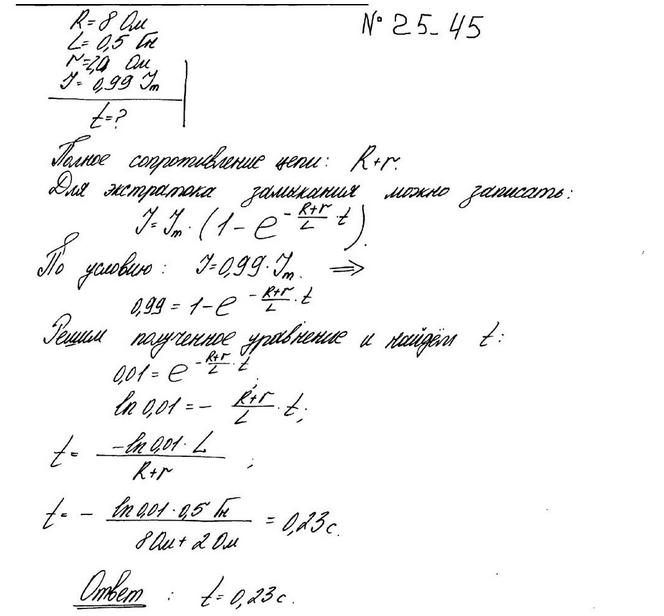 R = 8 Ом
№ 25-45
L = 0,5 Гн
r = 2,0 Ом
J = 0,99 Jm
t = ?
Полное сопротивление цепи: R+r.
Для экстратока замыкания можно записать:
J = Jm · (1 - e^(-(R+r)/L · t)).
По условию: J = 0,99 · Jm. ⇒
0,99 = 1 - e^(-(R+r)/L · t)
Решим полученное уравнение и найдём t:
0,01 = e^(-(R+r)/L · t);
ln 0,01 = - (R+r)/L · t;
t = (-ln 0,01 · L)/(R+r);
t = - (ln 0,01 · 0,5 Гн)/(8 Ом + 2 Ом) = 0,23 с.
Ответ: t = 0,23 с.